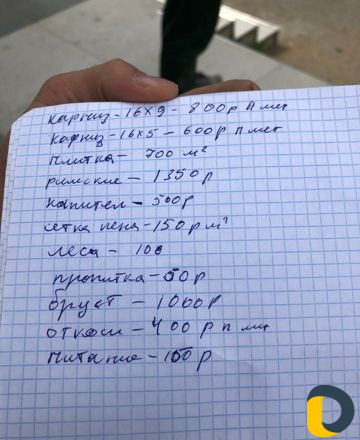 карниз - 16х9 - 800р п мет
карниз - 16х5 - 600р п мет
плитка - 700 м²
римские - 1350р
капител - 500р
сетка пена - 150р м²
леса - 100
пропитка - 50р
бруст - 1000р
откоси - 400р п мет
питание - 150р